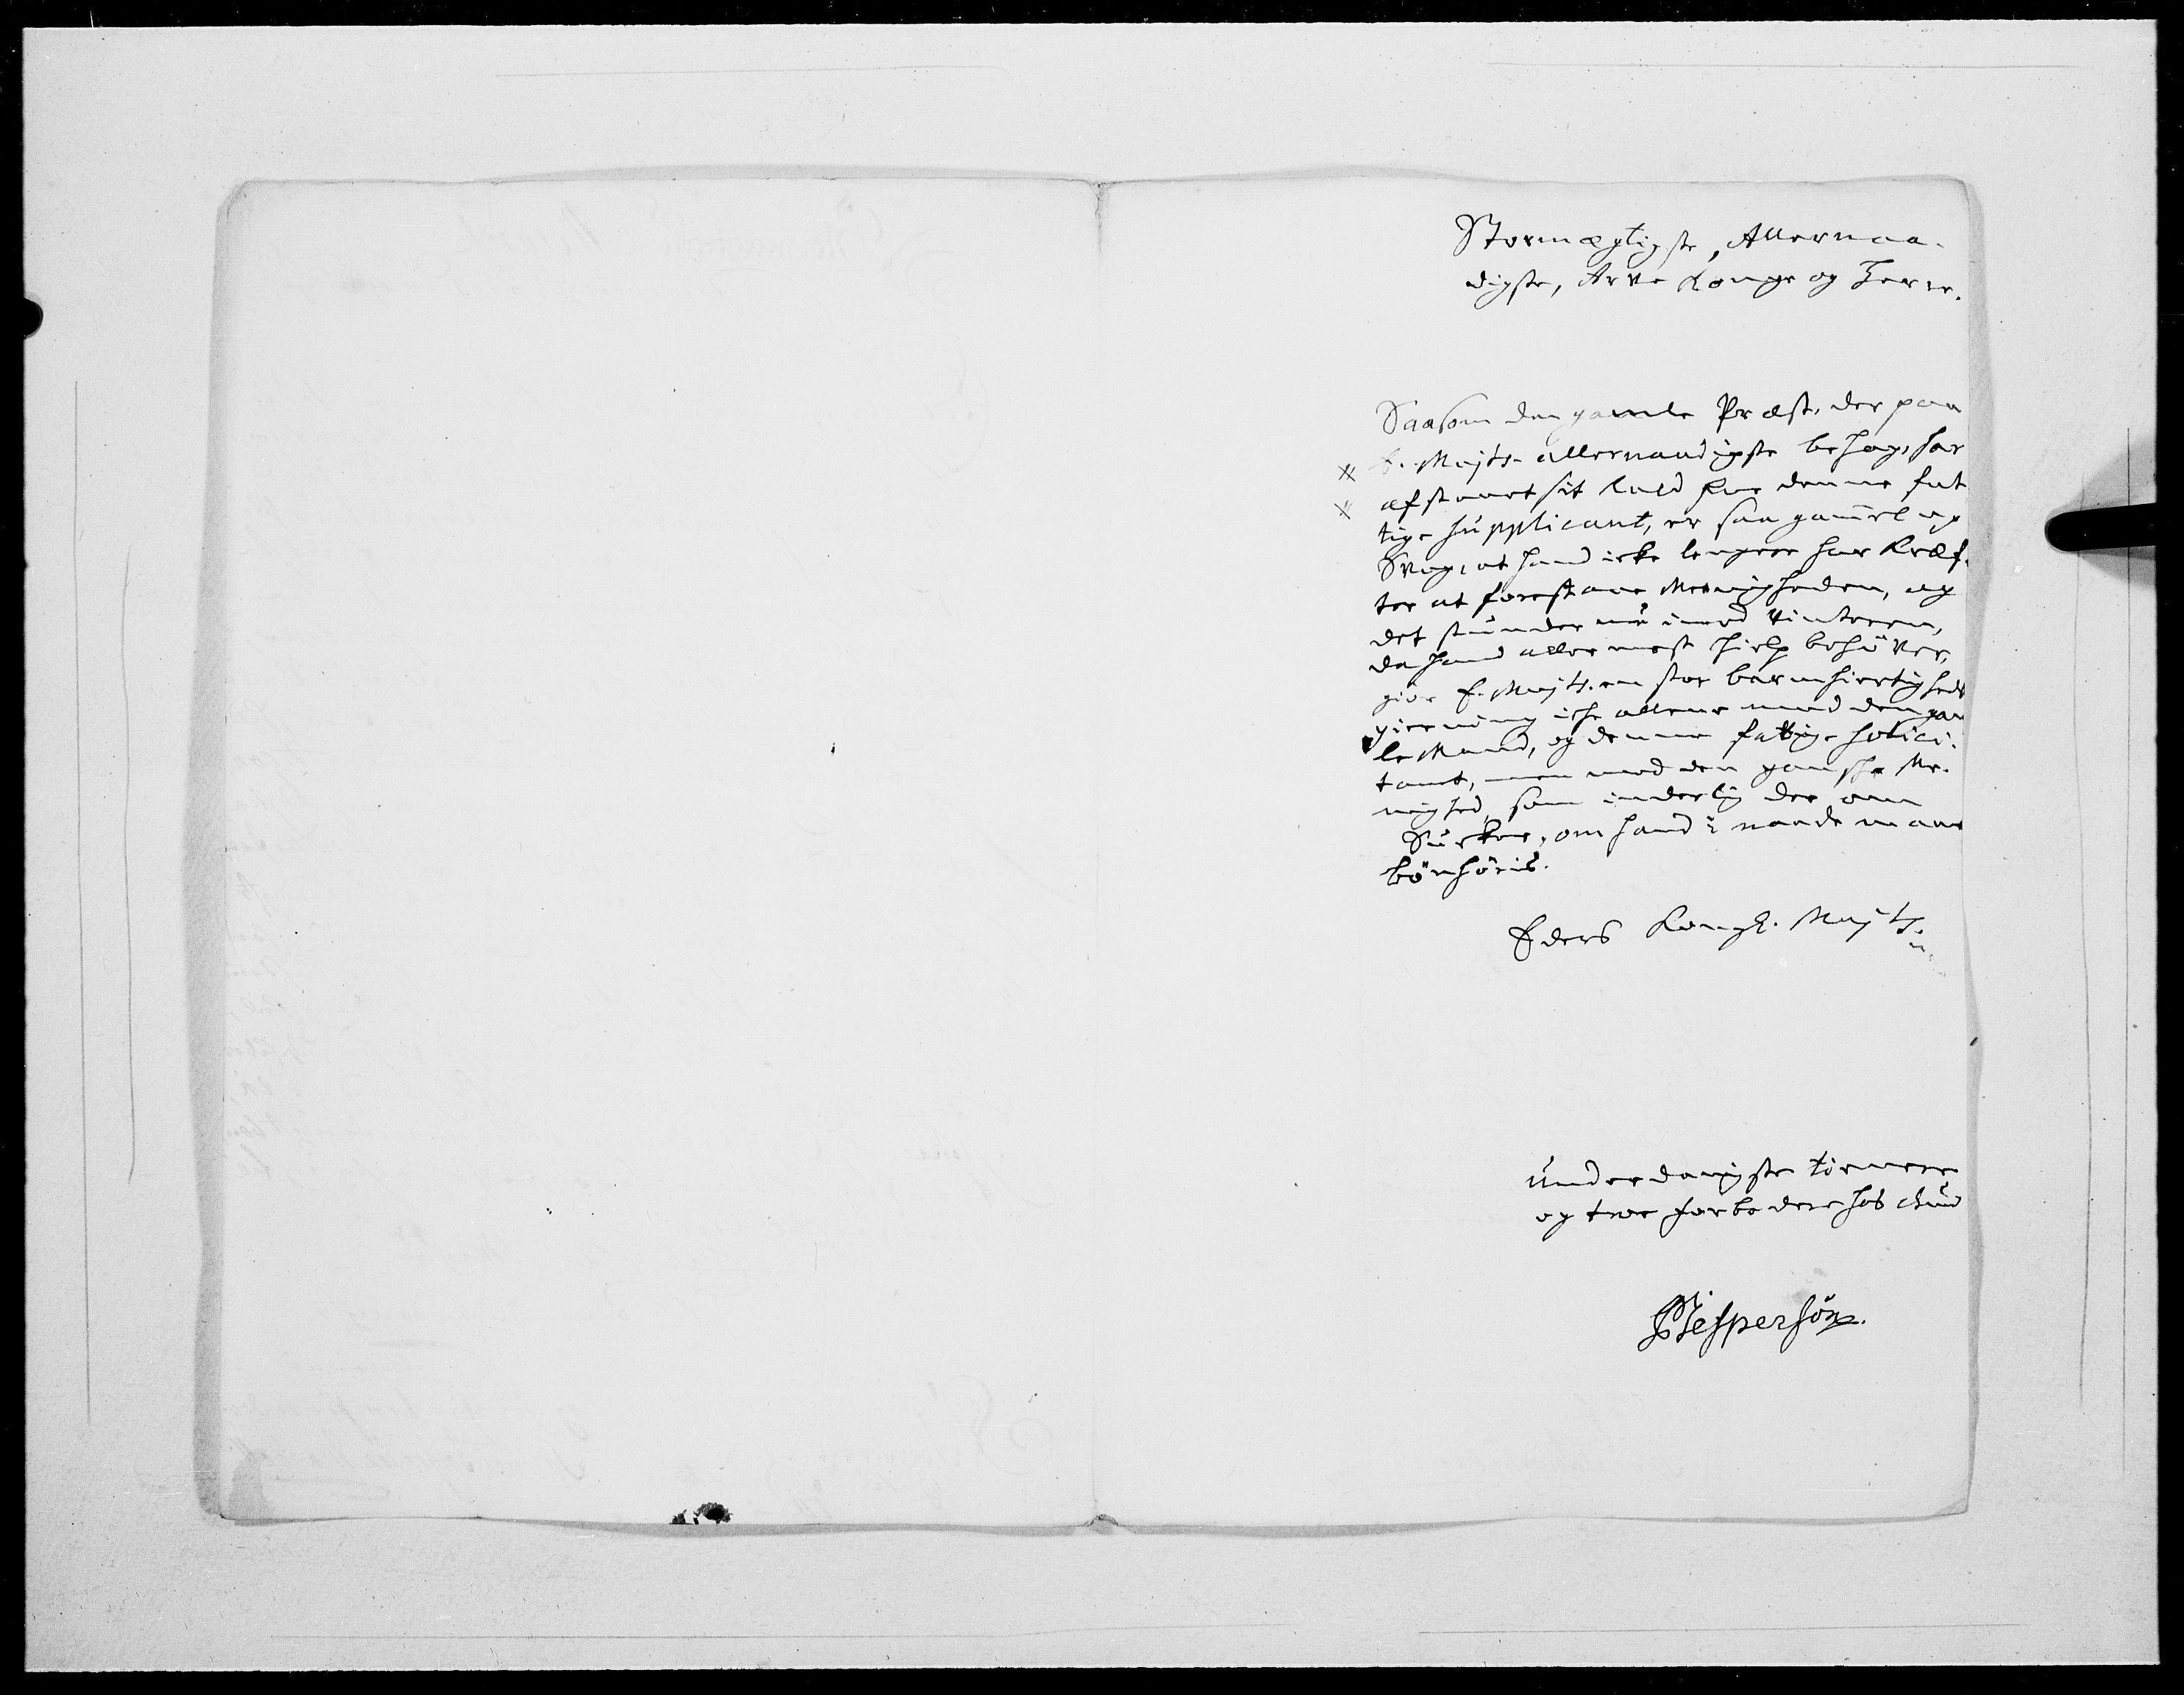 Stormægtigste, Allernaa-
digste, Arve Konge og Herre.
Saasom den gamle Præst, der paa
E. Majts. allernaadigste behag, har
afstaaet sit Kald for denne fat
tige supplicant, er saa gammel og
Svag, at hand icke lengere har Kræf-
ter at forestaae Menigheden, og
det stunder nu imod Vinteren,
da hand aller mest hielp behøver,
giør E. Majts. en stor barmhiertigheds
gierning iche allene mod den gam
le Mand, og denne fattige solici-
tant, men mod den gansche Me-
nighed, som inderlig der om
Sucker, om hand i naade maae
bønhøris.
Eders Kongl. Majts.
underdanigste tienere
og troe forbedere hos Gud
Jespersøn.